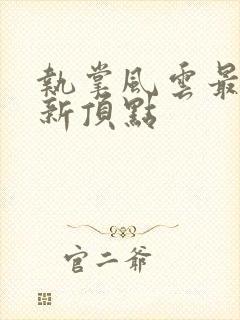 執掌風雲最
新頂點
官二爺